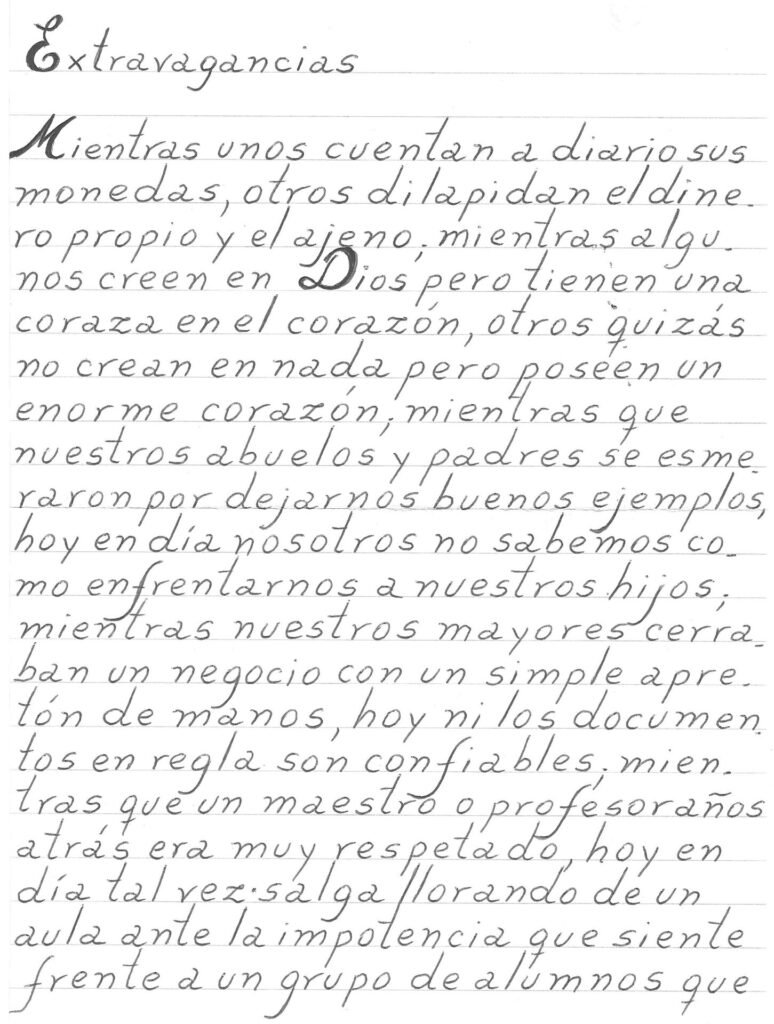 Extravagancias
Mientras unos cuentan a diario sus
monedas, otros dilapidan el dine-
ro propio y el ajeno; mientras algu-
nos creen en Dios pero tienen una
coraza en el corazón, otros quizás
no crean en nada pero poseen un
enorme corazón; mientras que
nuestros abuelos y padres se esme-
raron por dejarnos buenos ejemplos,
hoy en día nosotros no sabemos co-
mo enfrentarnos a nuestros hijos;
mientras nuestros mayores cerra-
ban un negocio con un simple apre-
tón de manos, hoy ni los documen-
tos en regla son confiables; mien-
tras que un maestro o profesor años
atrás era muy respetado, hoy en
día tal vez salga llorando de un
aula ante la impotencia que siente
frente a un grupo de alumnos que